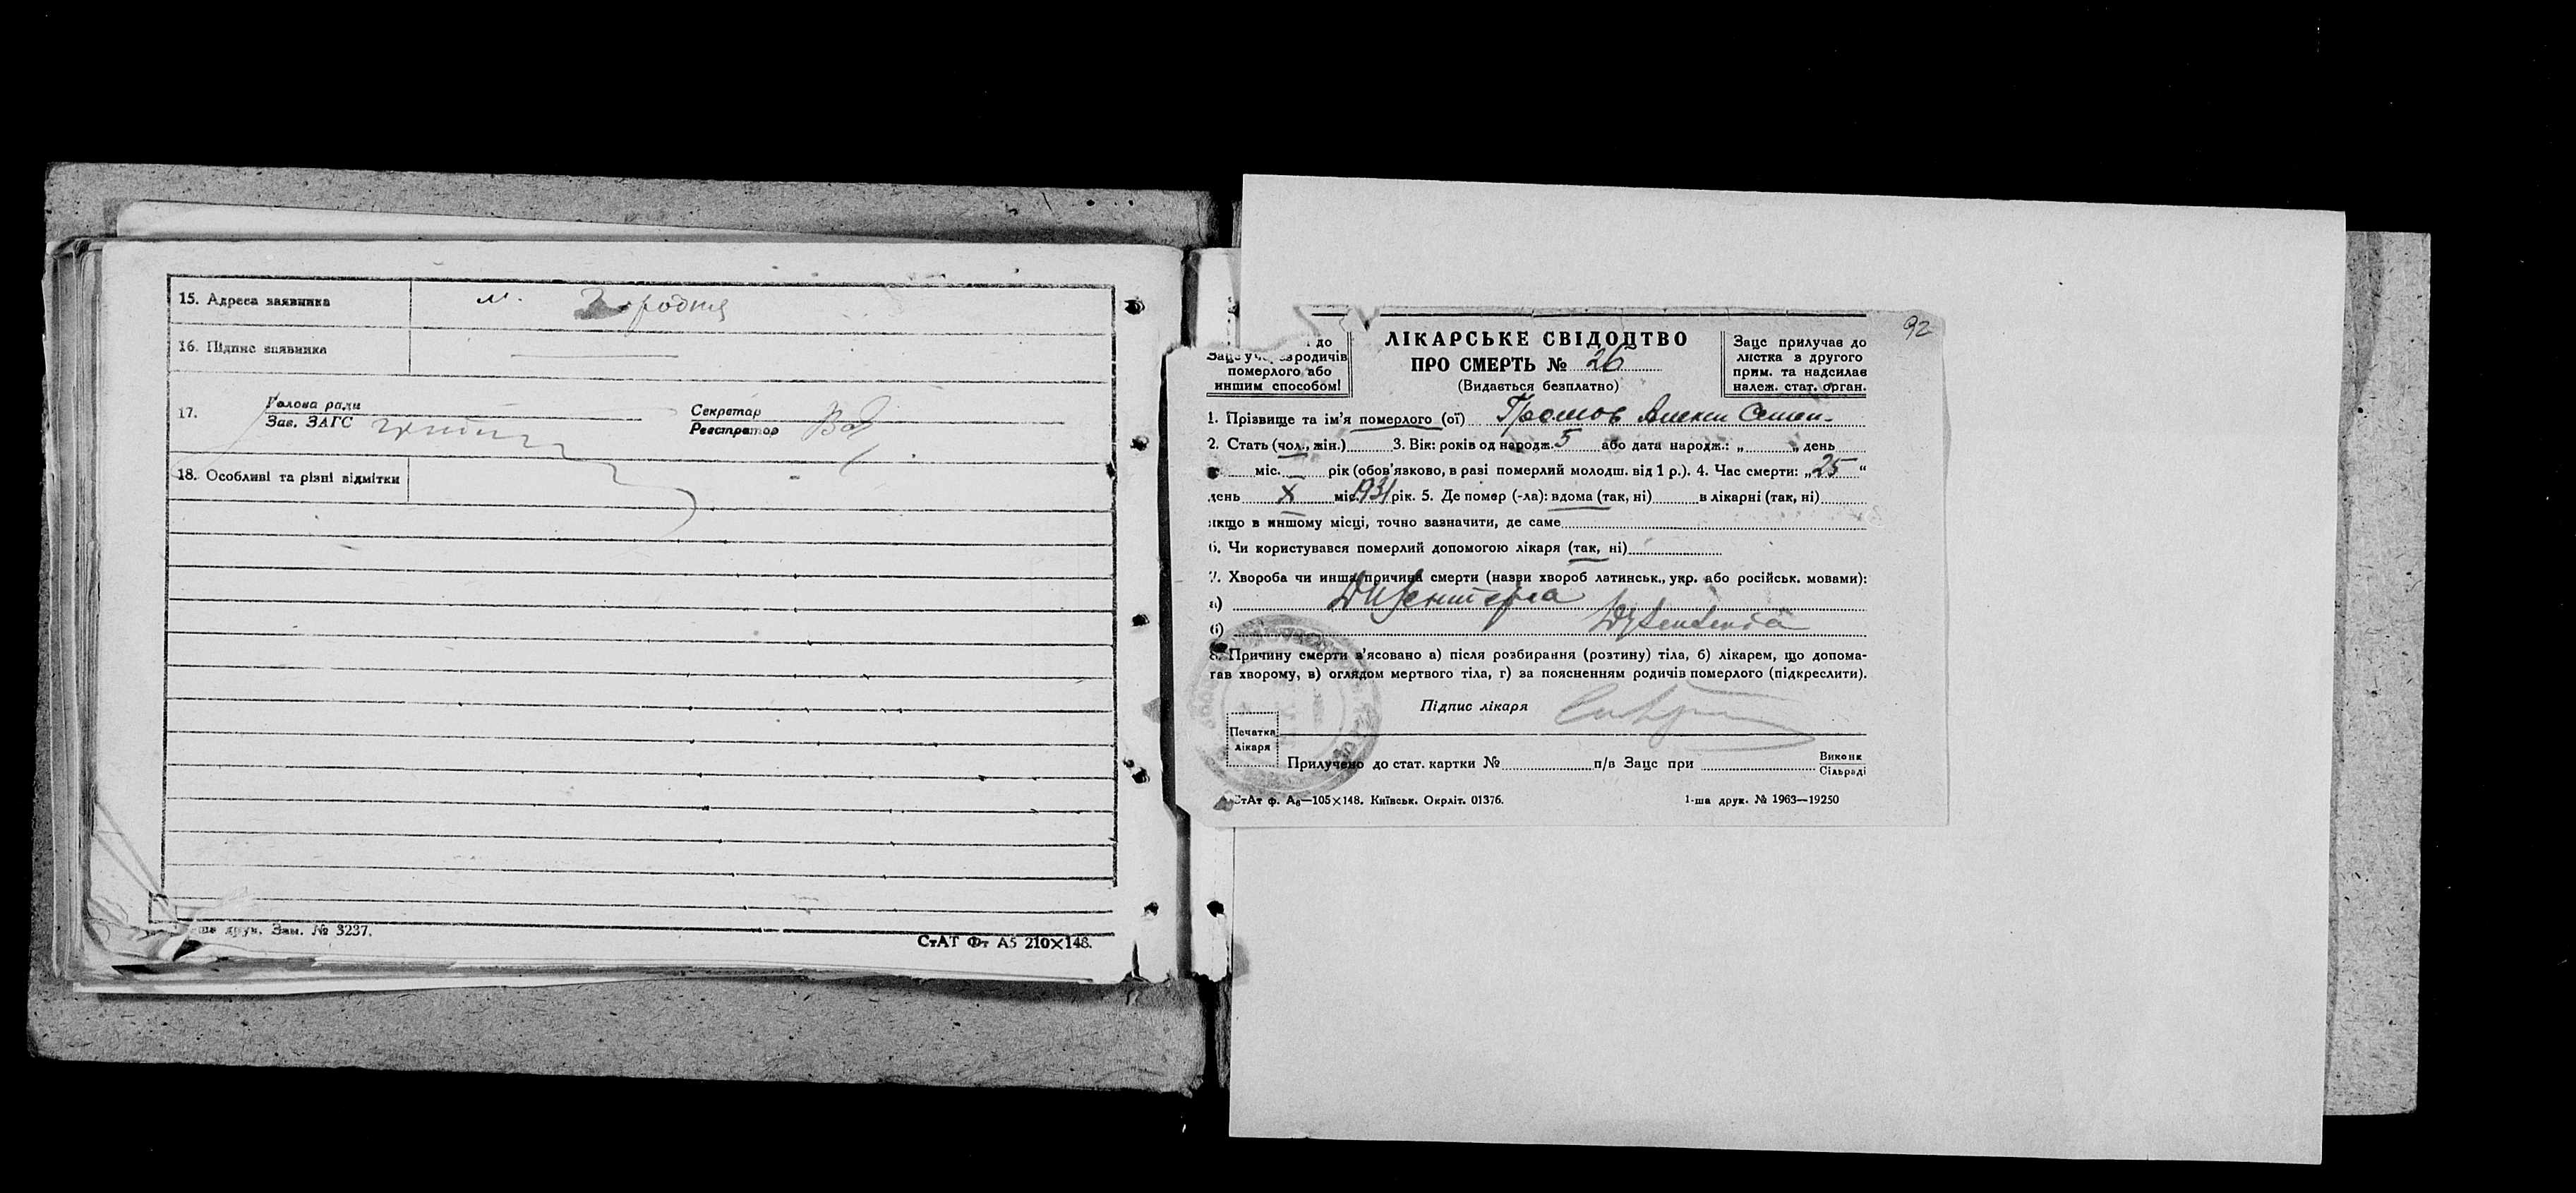 15. Адреса заявника м. Городня
16. Підпис заявника
17. Голова ради Секретар
Зав. ЗАГС Реєстратор
18. Особливі та різні відмітки
ша друк. Зам. № 3237.
СтАТ Фт А5 210×148.
92
до
родичів
померлого або
иншим способом!
ЛІКАРСЬКЕ СВІДОЦТВО
ПРО СМЕРТЬ № 26
(Видається безплатно)
Зацс прилучає до
листка в другого
прим. та надсилав
належ. стат. орган.
1. Прізвище та ім'я померлого (ої) Громов
2. Стать (чол., жін.) 3. Вік: років од народж. 5 або дата народж.: „ „ день
міс. рік (обов'язково, в разі померлий молодш. від 1 р.). 4. Час смерти: „25“
день X міс. 1931 рік. 5. Де помер (-ла): вдома (так, ні) в лікарні (так, ні)
якщо в иншому місці, точно зазначити, де саме
6. Чи користувався померлий допомогою лікаря (так, ні)
7. Хвороба чи инша причина смерти (назви хвороб латинськ., укр. або російськ. мовами):
а) Дизентерія
б) Dysenteria
8. Причину смерти з'ясовано а) після розбирання (розтину) тіла, б) лікарем, що допома-
гав хворому, в) оглядом мертвого тіла, г) за поясненням родичів померлого (підкреслити).
Підпис лікаря
Печатка
лікаря
Прилучено до стат. картки № п/в Зацс при Виконк
Сільраді
СтАт ф. А₆—105×148. Київськ. Окрліт. 01376. 1-ша друк. № 1963—19250